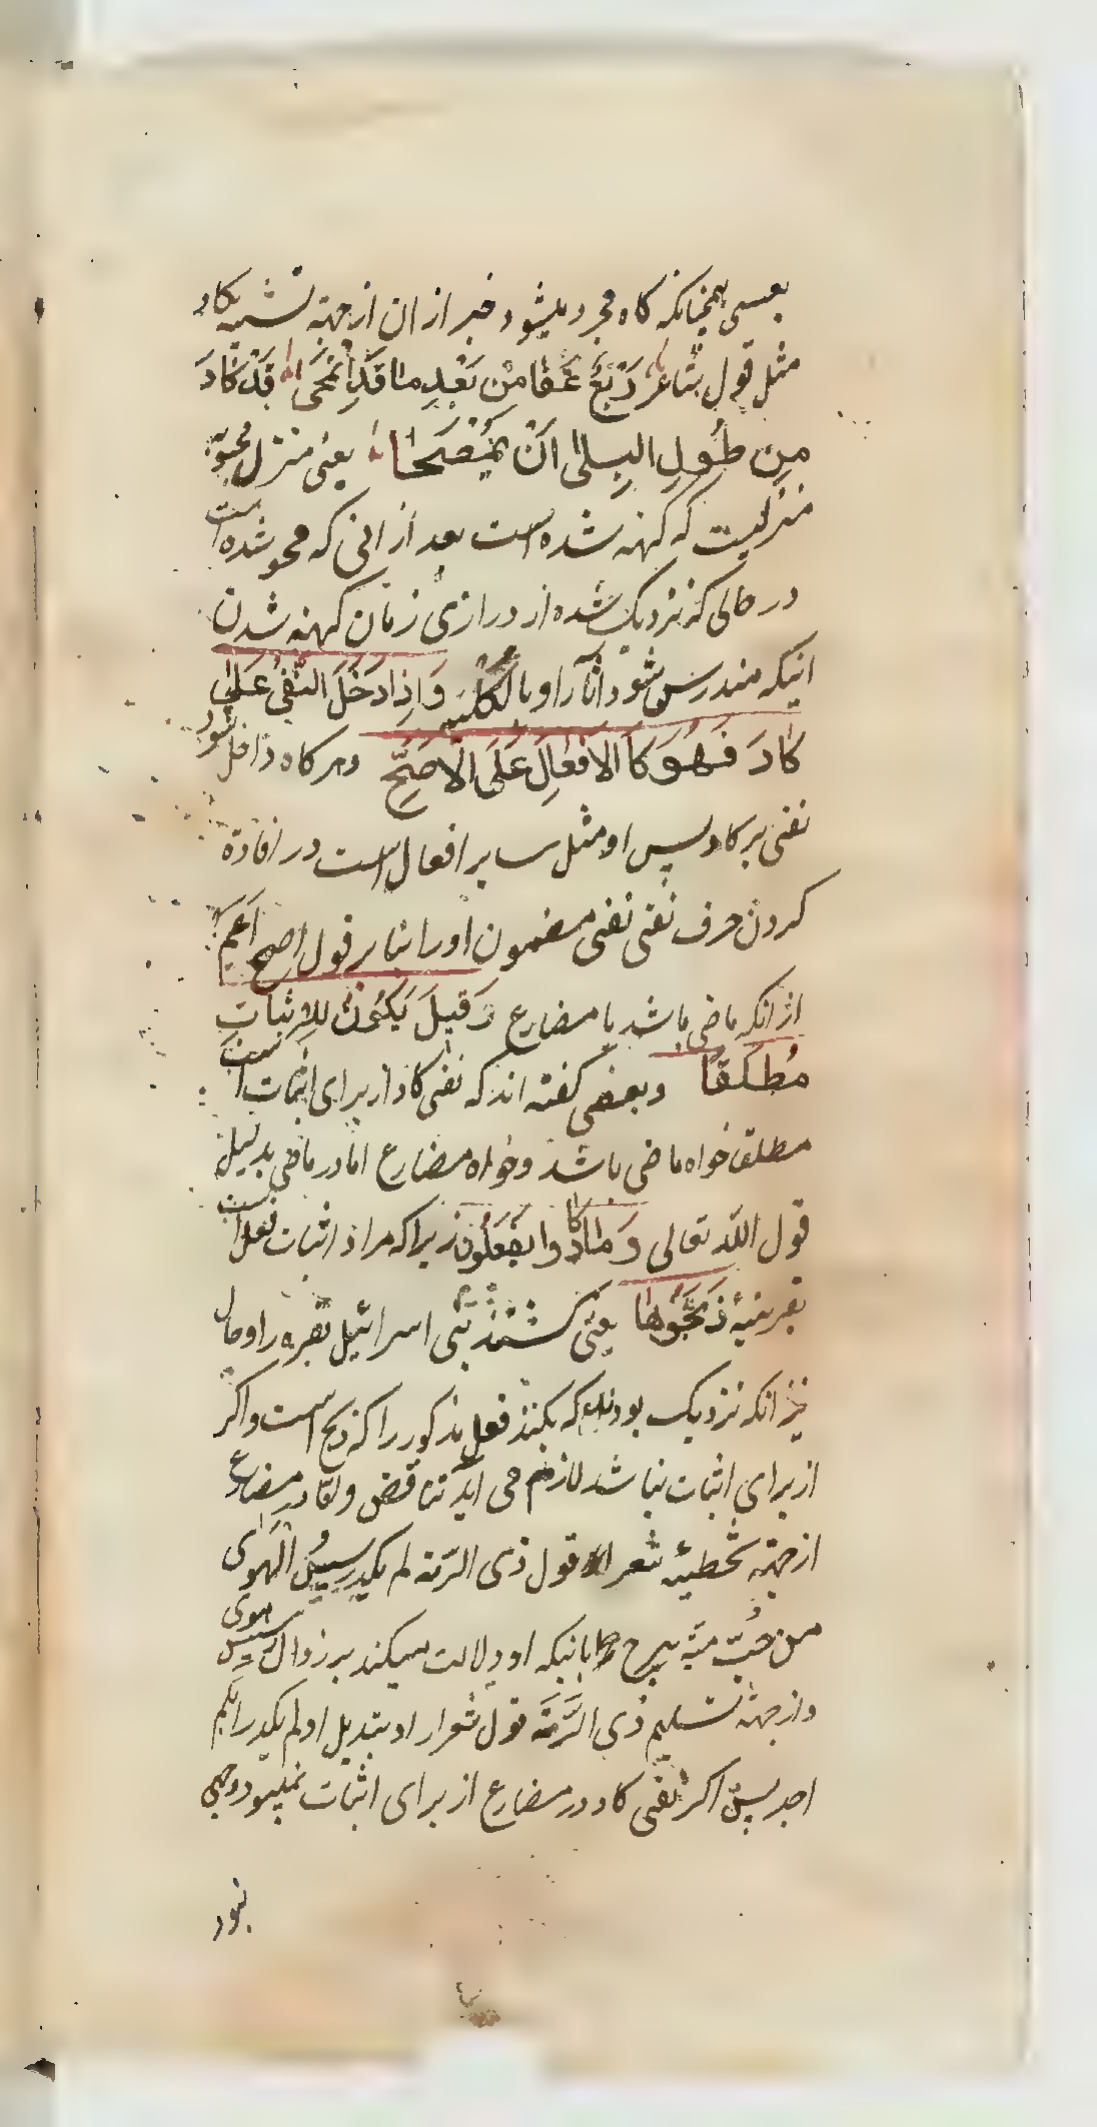 بعسی همچنانکه کاه مجرد میشود خبر از ان از جهة تشبیه بکاد
مثل قول شاعر رَبْعٌ عَفَا مِنْ بَعْدِ مَا قَدِ انْمَحَی قَدْ کَادَ
مِن طُولِ البِلی اَنْ یَمْصَحَا یعنی منزل محبوبه
منزلیست که کهنه شده است بعد از انی که محو شده است
در حالی که نزدیک شده از درازی زمان کهنه شدن
اینکه مندرس شود اثار او بالکلیه وَاِذَا دَخَلَ النَّفْیُ عَلَی
کَادَ فَهُوَ کَالاَفْعَالِ عَلَی الاَصَحِّ و هر کاه داخل شود
نفی بر کاد پس او مثل سایر افعال است در افادة
کردن حرف نفی نفی مضمون او را بنا بر قول اصح اعم
از انکه ماضی باشد یا مضارع وَقیلَ یَکُونُ لِلاِثْبَاتِ
مُطْلَقًا و بعضی کفته اند که نفی کاد از برای اثبات است
مطلقا خواه ماضی باشد و خواه مضارع اما در ماضی بدلیل
قول الله تعالی وَمَا کَادُوا یَفْعَلُونَ زیرا که مراد اثبات فعل است
بقرینهٔ فَذَبَحُوهَا یعنی کشتند بنی اسرائیل بقره را و حال
نیز انکه نزدیک بودند که بکنند فعل مذکور را که ذبح است و اکر
از برای اثبات نباشد لازم می اید تناقض و اما در مضارع
از جهة تخطیهٔ شعرا قول ذی الرمة لم یکد رسیس الهوی
من حُبّ میّة یبرح بانیکه او دلالت میکند بر زوال رسیس هوی
و از جهة تسلیم ذی الرُّمَّة قول شعرا را و بتدیل او لم یکد را بلم
اجد پس اکر نفی کاد در مضارع از برای اثبات نمیبود وجهی
نبود